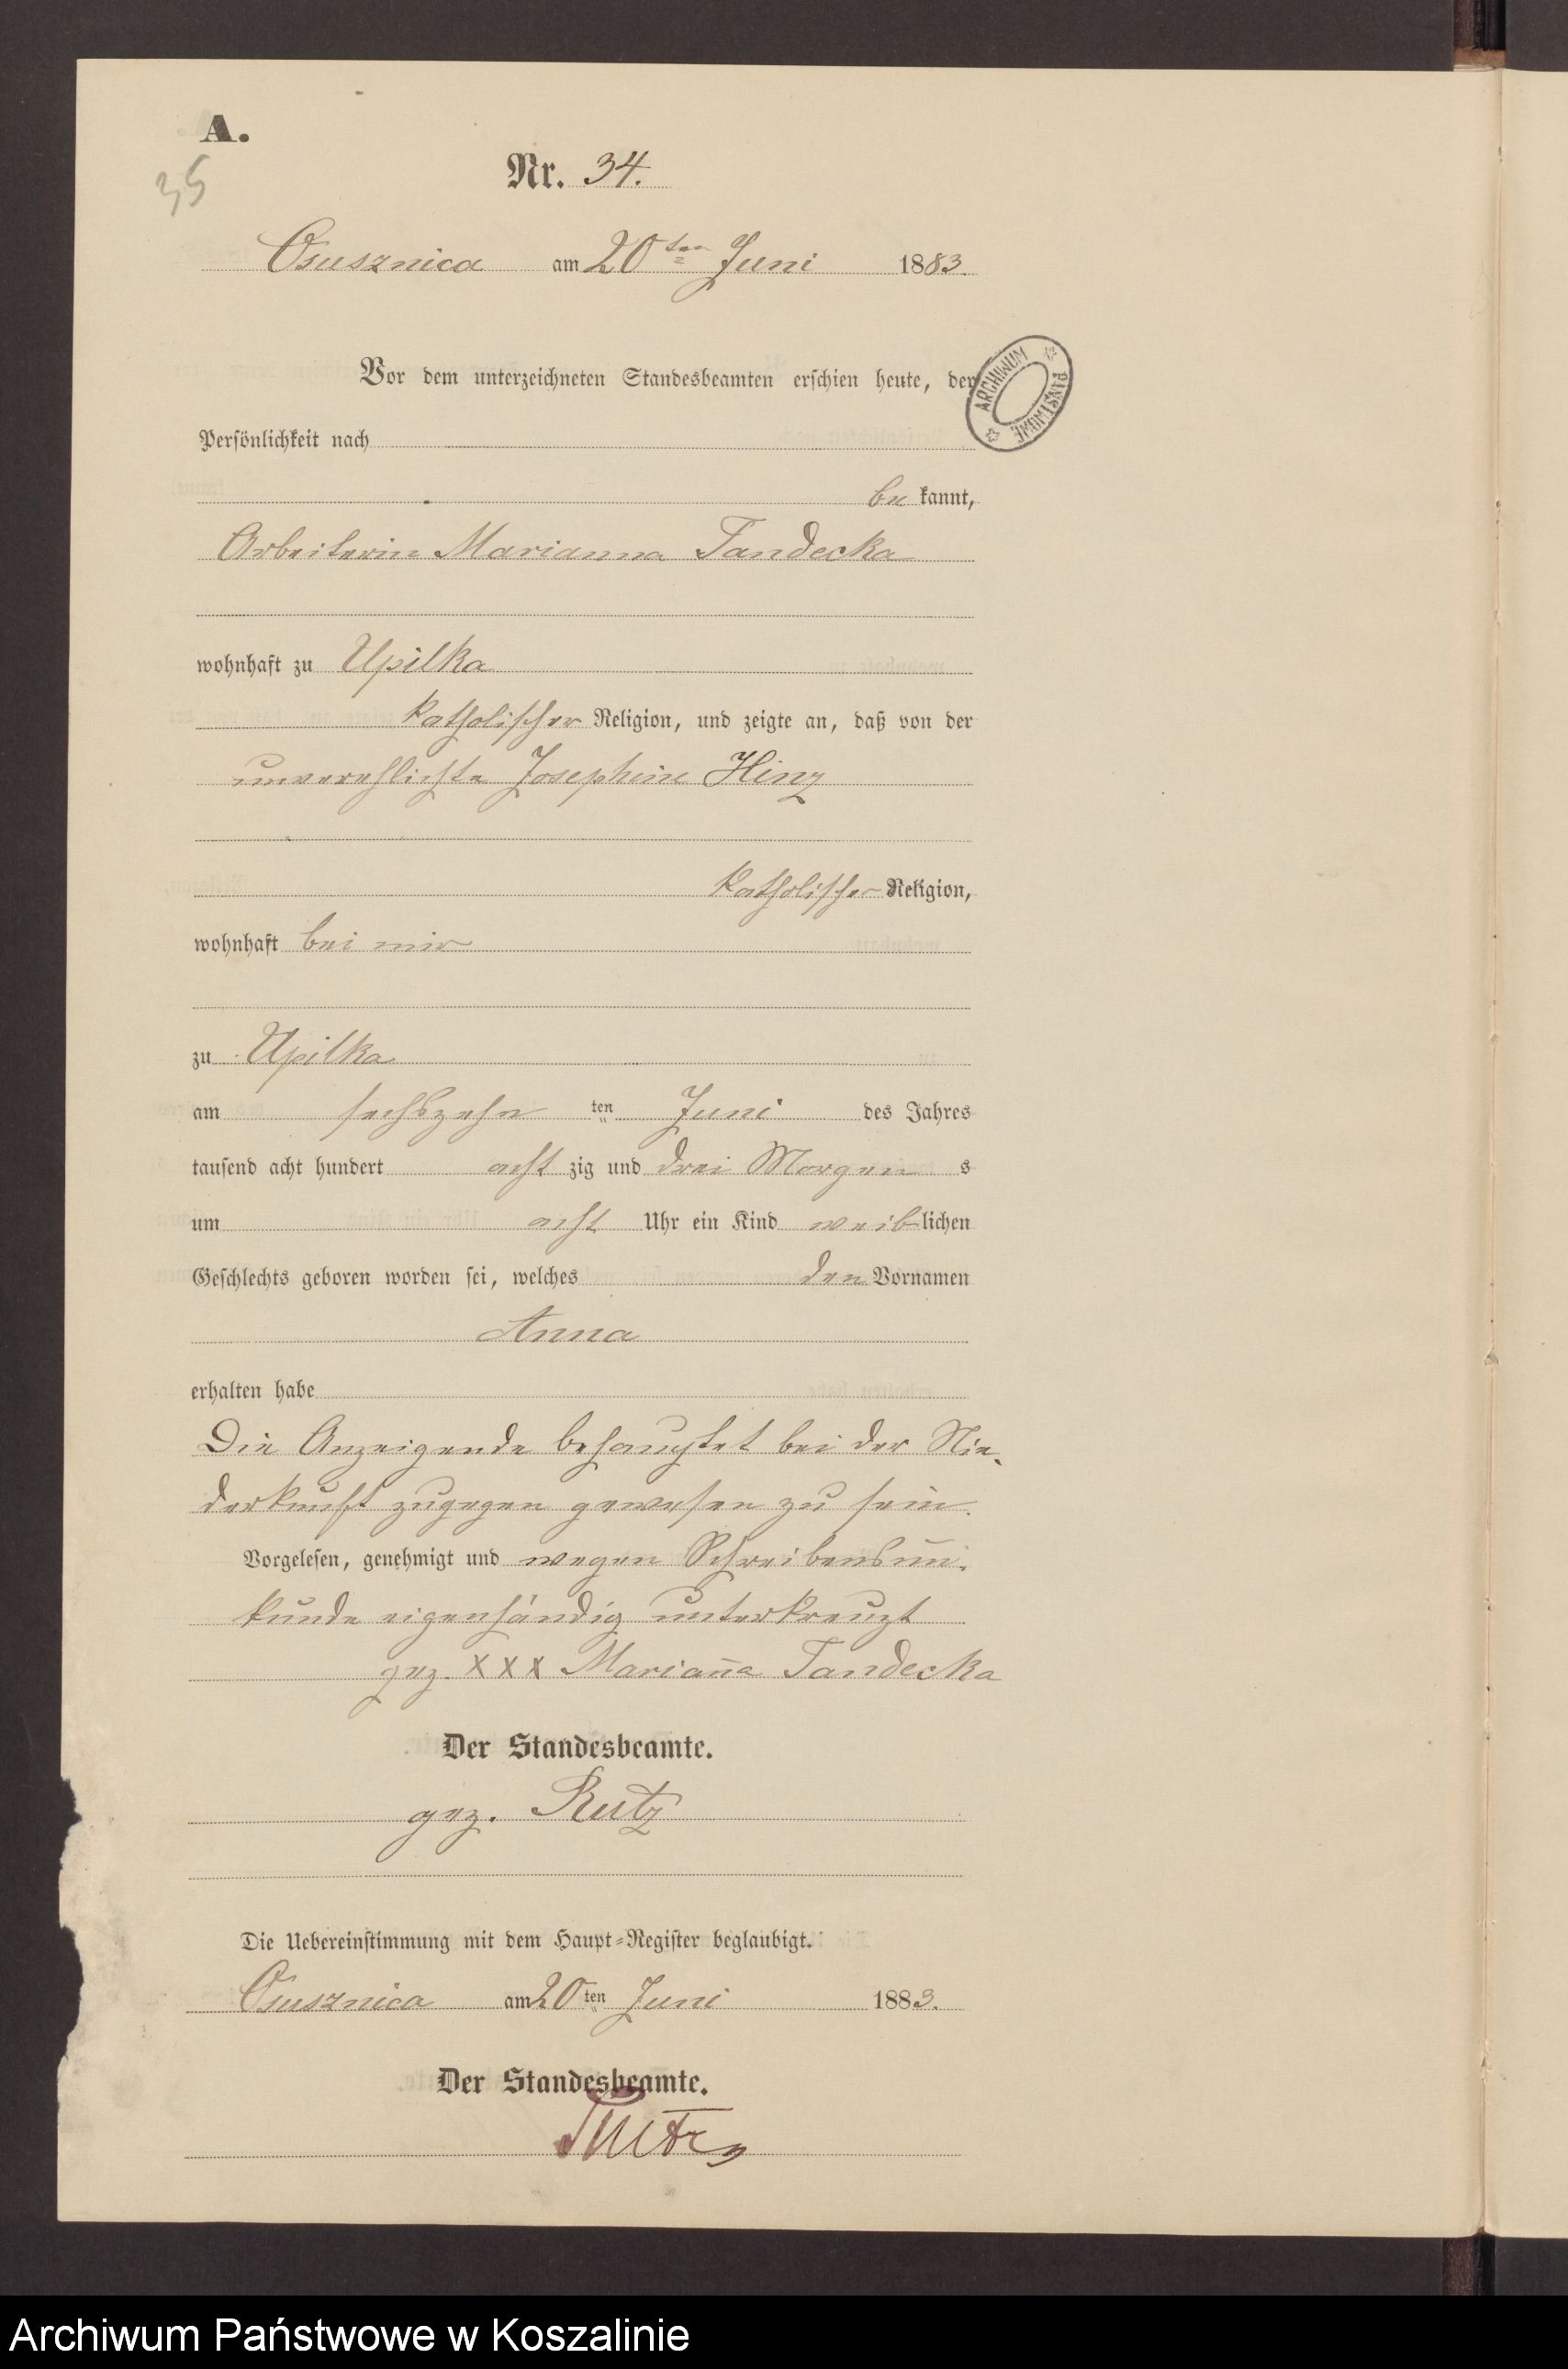 A.
35
Nr. 34.
Osusznica am 20ten Juni 1883.
Vor dem unterzeichneten Standesbeamten erschien heute, der
ARCHIWUM PAŃSTWOWE
Persönlichkeit nach
be kannt,
Arbeiterin Marianna Tandecka
wohnhaft zu Upilka
katholischer Religion, und zeigte an, daß von der
unverehlichte Josephine Hinz
katholischer Religion,
wohnhaft bei mir
zu Upilka
am sechszehn ten Juni des Jahres
tausend acht hundert acht zig und drei Morgen s
um acht Uhr ein Kind weiblichen
Geschlechts geboren worden sei, welches den Vornamen
Anna
erhalten habe
Die Anzeigende behauptet bei der Nie-
derkunft zugegen gewesen zu sein.
Vorgelesen, genehmigt und wegen Schreibensun-
kunde eigenhändig unterkreuzt
gez. XXX Mariana Tandecka
Der Standesbeamte.
gez. Rutz
Die Uebereinstimmung mit dem Haupt-Register beglaubigt.
Osusznica am 20ten Juni 1883.
Der Standesbeamte.
Rutz
Archiwum Państwowe w Koszalinie